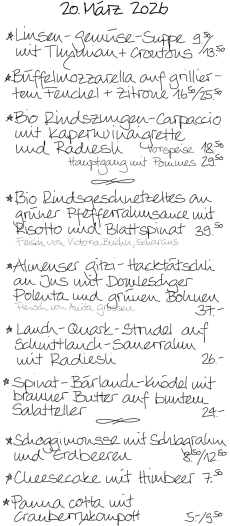 20. März 2026
* Linsen-Gemüse-Suppe 9.50/
mit Thymian + Croutons 13.50
* Büffelmozzarella auf grillier-
tem Fenchel + Zitrone 16.50/25.50
* Bio Rindszungen-Carpaccio
mit Kapernvinaigrette
und Radiesli Vorspeise 18.50
Hauptgang mit Pommes 29.50
* Bio Rindsgeschnetzeltes an
grüner Pfefferrahmsauce mit
Risotto und Blattspinat 39.50
Fleisch von Victoria
* Almenser Gitzi-Hacktätschli
an Jus mit
Polenta und grünen Bohnen
Fleisch von Anita 37.-
* Lauch-Quark-Strudel auf
Schnittlauch-Sauerrahm
mit Radiesli 26.-
* Spinat-Bärlauch-Knödel mit
brauner Butter auf buntem
Salatteller 24.-
* Schoggimousse mit Schlagrahm
und Erdbeeren 8.50/12.50
* Cheesecake mit Himbeer 7.50
* Panna cotta mit
Cranberrykompott 5.-/9.50